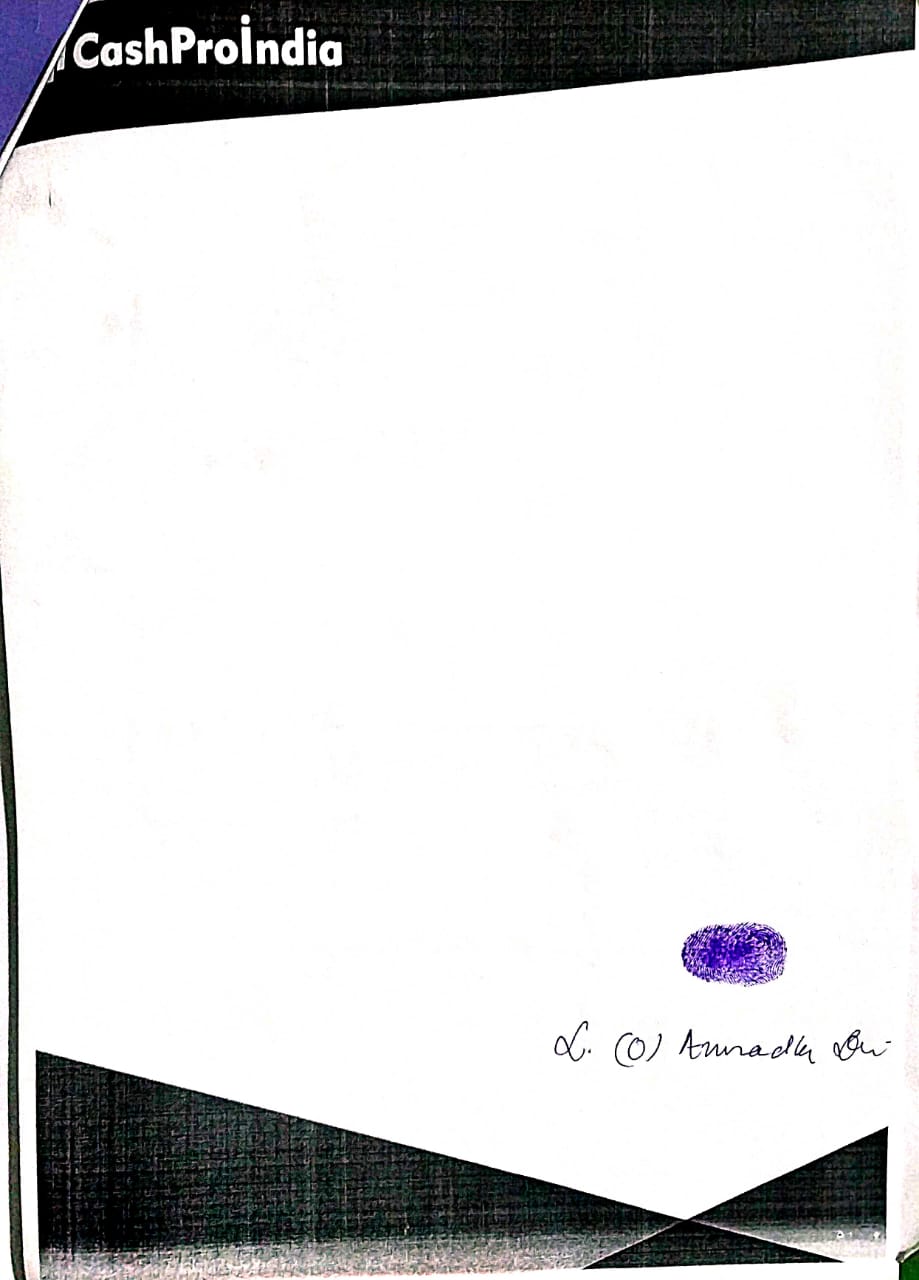 CashProİndia
L. (0) Anuradha Devi